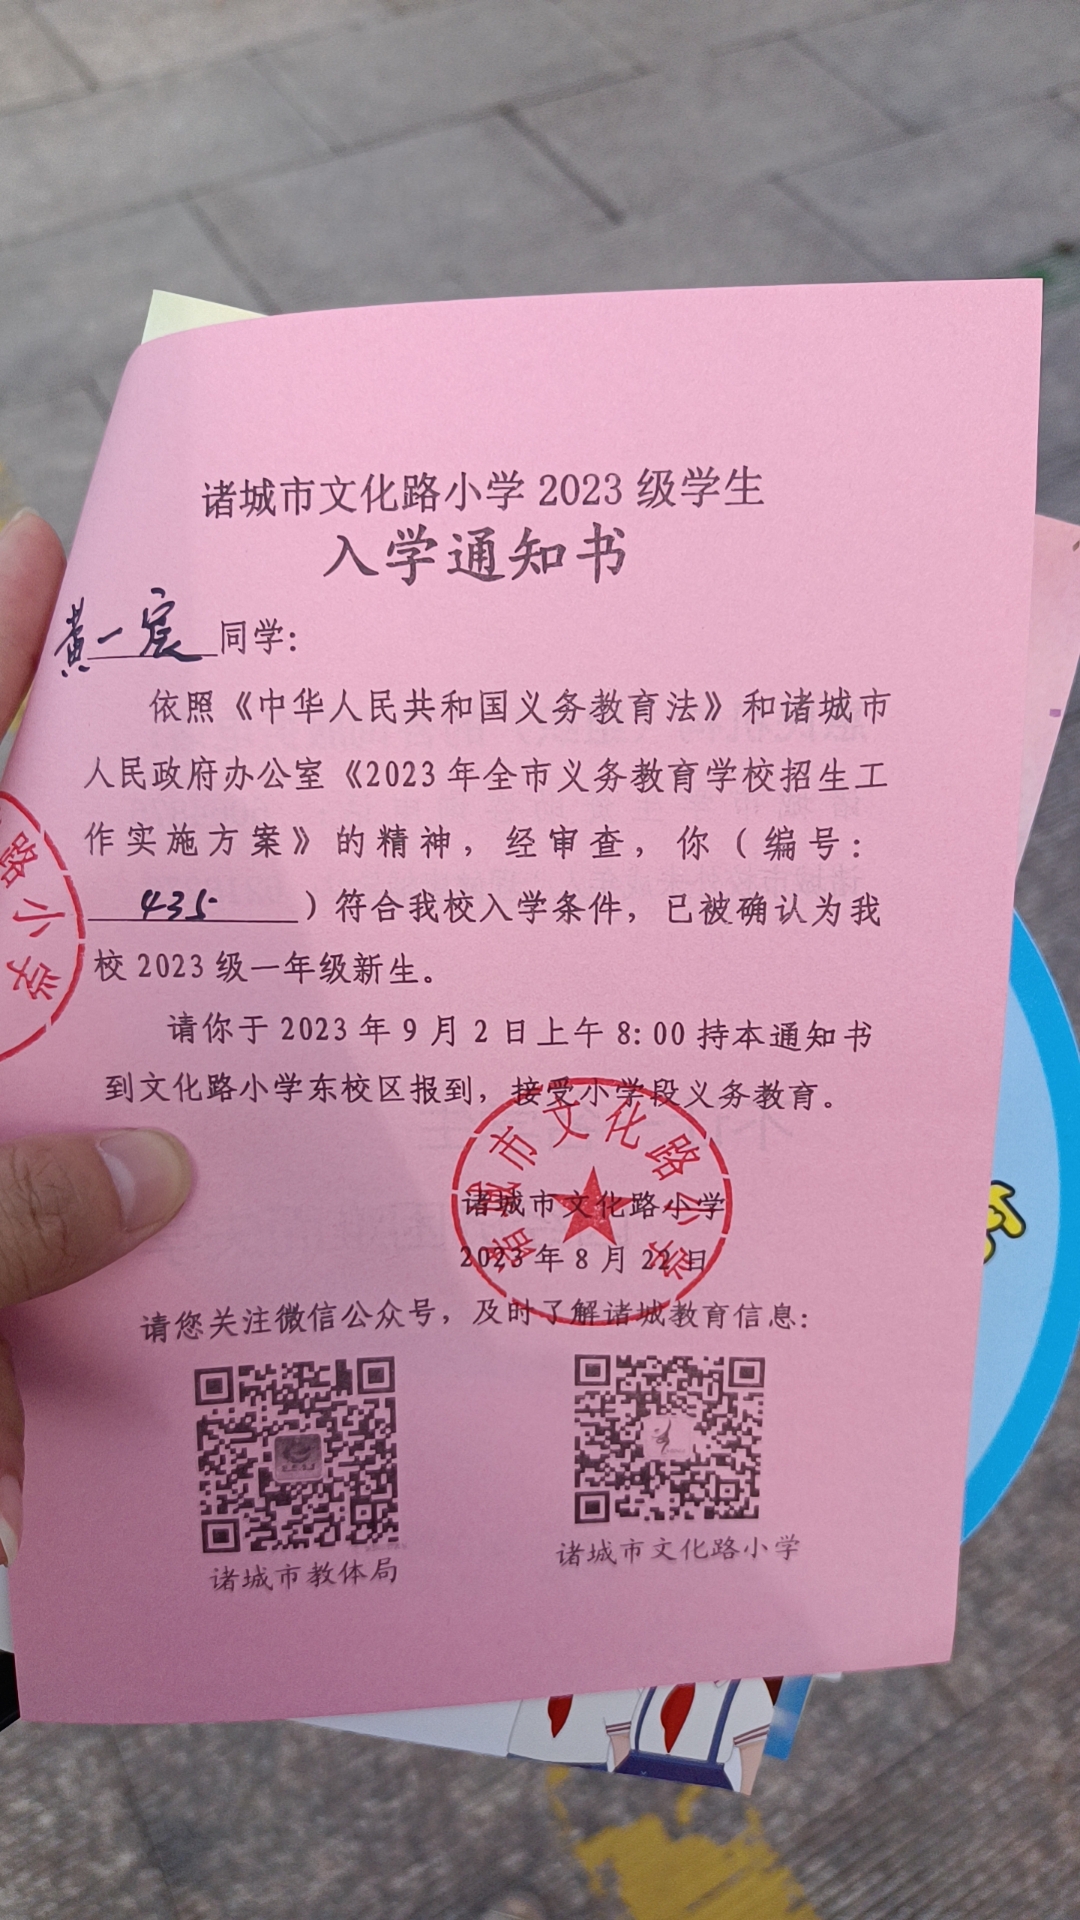 诸城市文化路小学 2023 级学生
入学通知书
黄一宸同学：
依照《中华人民共和国义务教育法》和诸城市
人民政府办公室《2023 年全市义务教育学校招生工
作实施方案》的精神，经审查，你（编号：
435）符合我校入学条件，已被确认为我
校 2023 级一年级新生。
请你于 2023 年 9 月 2 日上午 8：00 持本通知书
到文化路小学东校区报到，接受小学段义务教育。
诸城市文化路小学
诸城市文化路小学
2023 年 8 月 22 日
路小学
请您关注微信公众号，及时了解诸城教育信息：
诸城市教体局
诸城市文化路小学